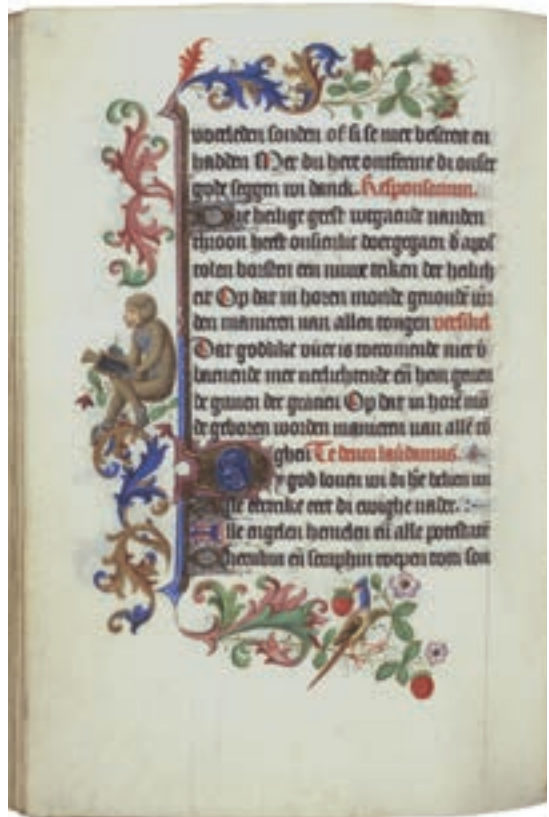 voerleden sonden of si se niet bescreit en
hadden Mer du here ontferme di onser
gode seggen wi danck. Responsorium.
Die heilige geest wtgaende vanden
throon heeft onsienlic doergegaen d apos
tolen borsten een nuwe teiken der heilich
eit Op dat in horen monde
den manieren van allen tongen versikel
Dat godlike vuer is toecomende niet v
barnende mer verlichtende en hem geven
de gaven der gracien Op dat in hore mo
de geboren worden manieren van alle to
ghen Te deum laudamus
y god loven wi di here belien wi
lle eertrike eert di ewighe vader.
lle engelen hemelen en alle potestate
Cherubin en seraphin roepen tot